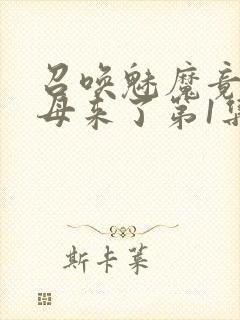 召唤魅魔竟
母来了第1集
斯卡莱